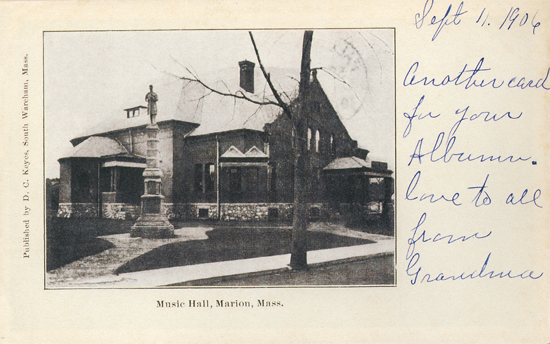 Sept 11. 1906
Another card
for your
Album.
love to all
from
Grandma
Published by D. C. Keyes, South Wareham, Mass.
Music Hall, Marion, Mass.